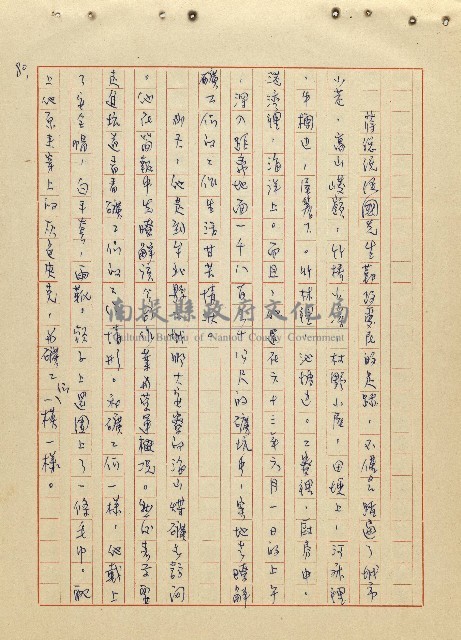 蔣總統經國先生勤政愛民的足跡，不僅踏遍了城市
小巷，高山峻嶺，竹橋小溪，林野小屋，田埂上，河水裡
，牛欄邊，屋簷下。竹林裡，池塘邊。工寮裡，廚房中。
海洋上。而且，就是在六十三年六月一日的上午
，深入距離地面一千八百五十公尺的礦坑中，實地去瞭解
礦工們的工作生活甘苦情狀。
那天，他是到台北縣 鄉 大 寮的海山煤礦去訪問
。他在簡報中先瞭解該公司作業與營運概況。他的表示要
走進坑道看看礦工們的工作情形。和礦工們一樣，他戴上
了安全帽，白手套，雨靴，頸子上還圍上了一條毛巾。配
上他原來穿上的灰色夾克，與礦工們一模一樣。
80.
南投縣政府文化局
Cultural Bureau of Nantou County Government